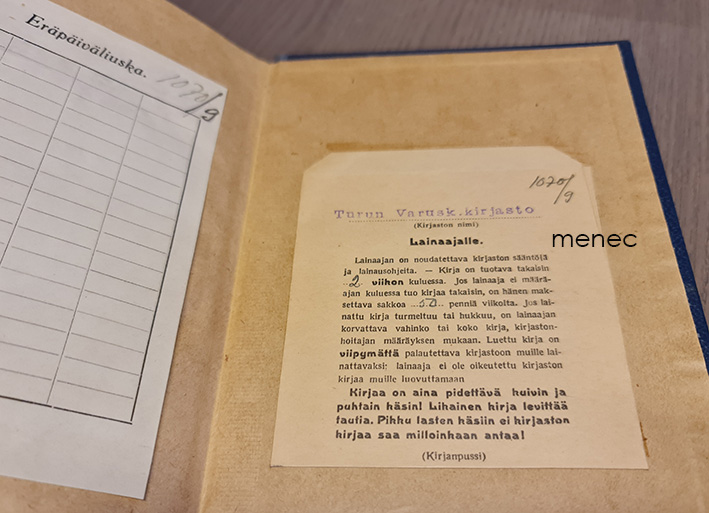 Eräpäiväliuska.
1070/9
1070/9
Turun Varusk.kirjasto
(Kirjaston nimi)
Lainaajalle.
menec
Lainaajan on noudatettava kirjaston sääntöjä
ja lainausohjeita. — Kirja on tuotava takaisin
2 viikon kuluessa. Jos lainaaja ei määrä-
ajan kuluessa tuo kirjaa takaisin, on hänen mak-
settava sakkoa 50 penniä viikolta. Jos lai-
nattu kirja turmeltuu tai hukkuu, on lainaajan
korvattava vahinko tai koko kirja, kirjaston-
hoitajan määräyksen mukaan. Luettu kirja on
viipymättä palautettava kirjastoon muille lai-
nattavaksi; lainaaja ei ole oikeutettu kirjaston
kirjaa muille luovuttamaan
Kirjaa on aina pidettävä kuivin ja
puhtain käsin! Likainen kirja levittää
tautia. Pikku lasten käsiin ei kirjaston
kirjaa saa milloinkaan antaa!
(Kirjanpussi)